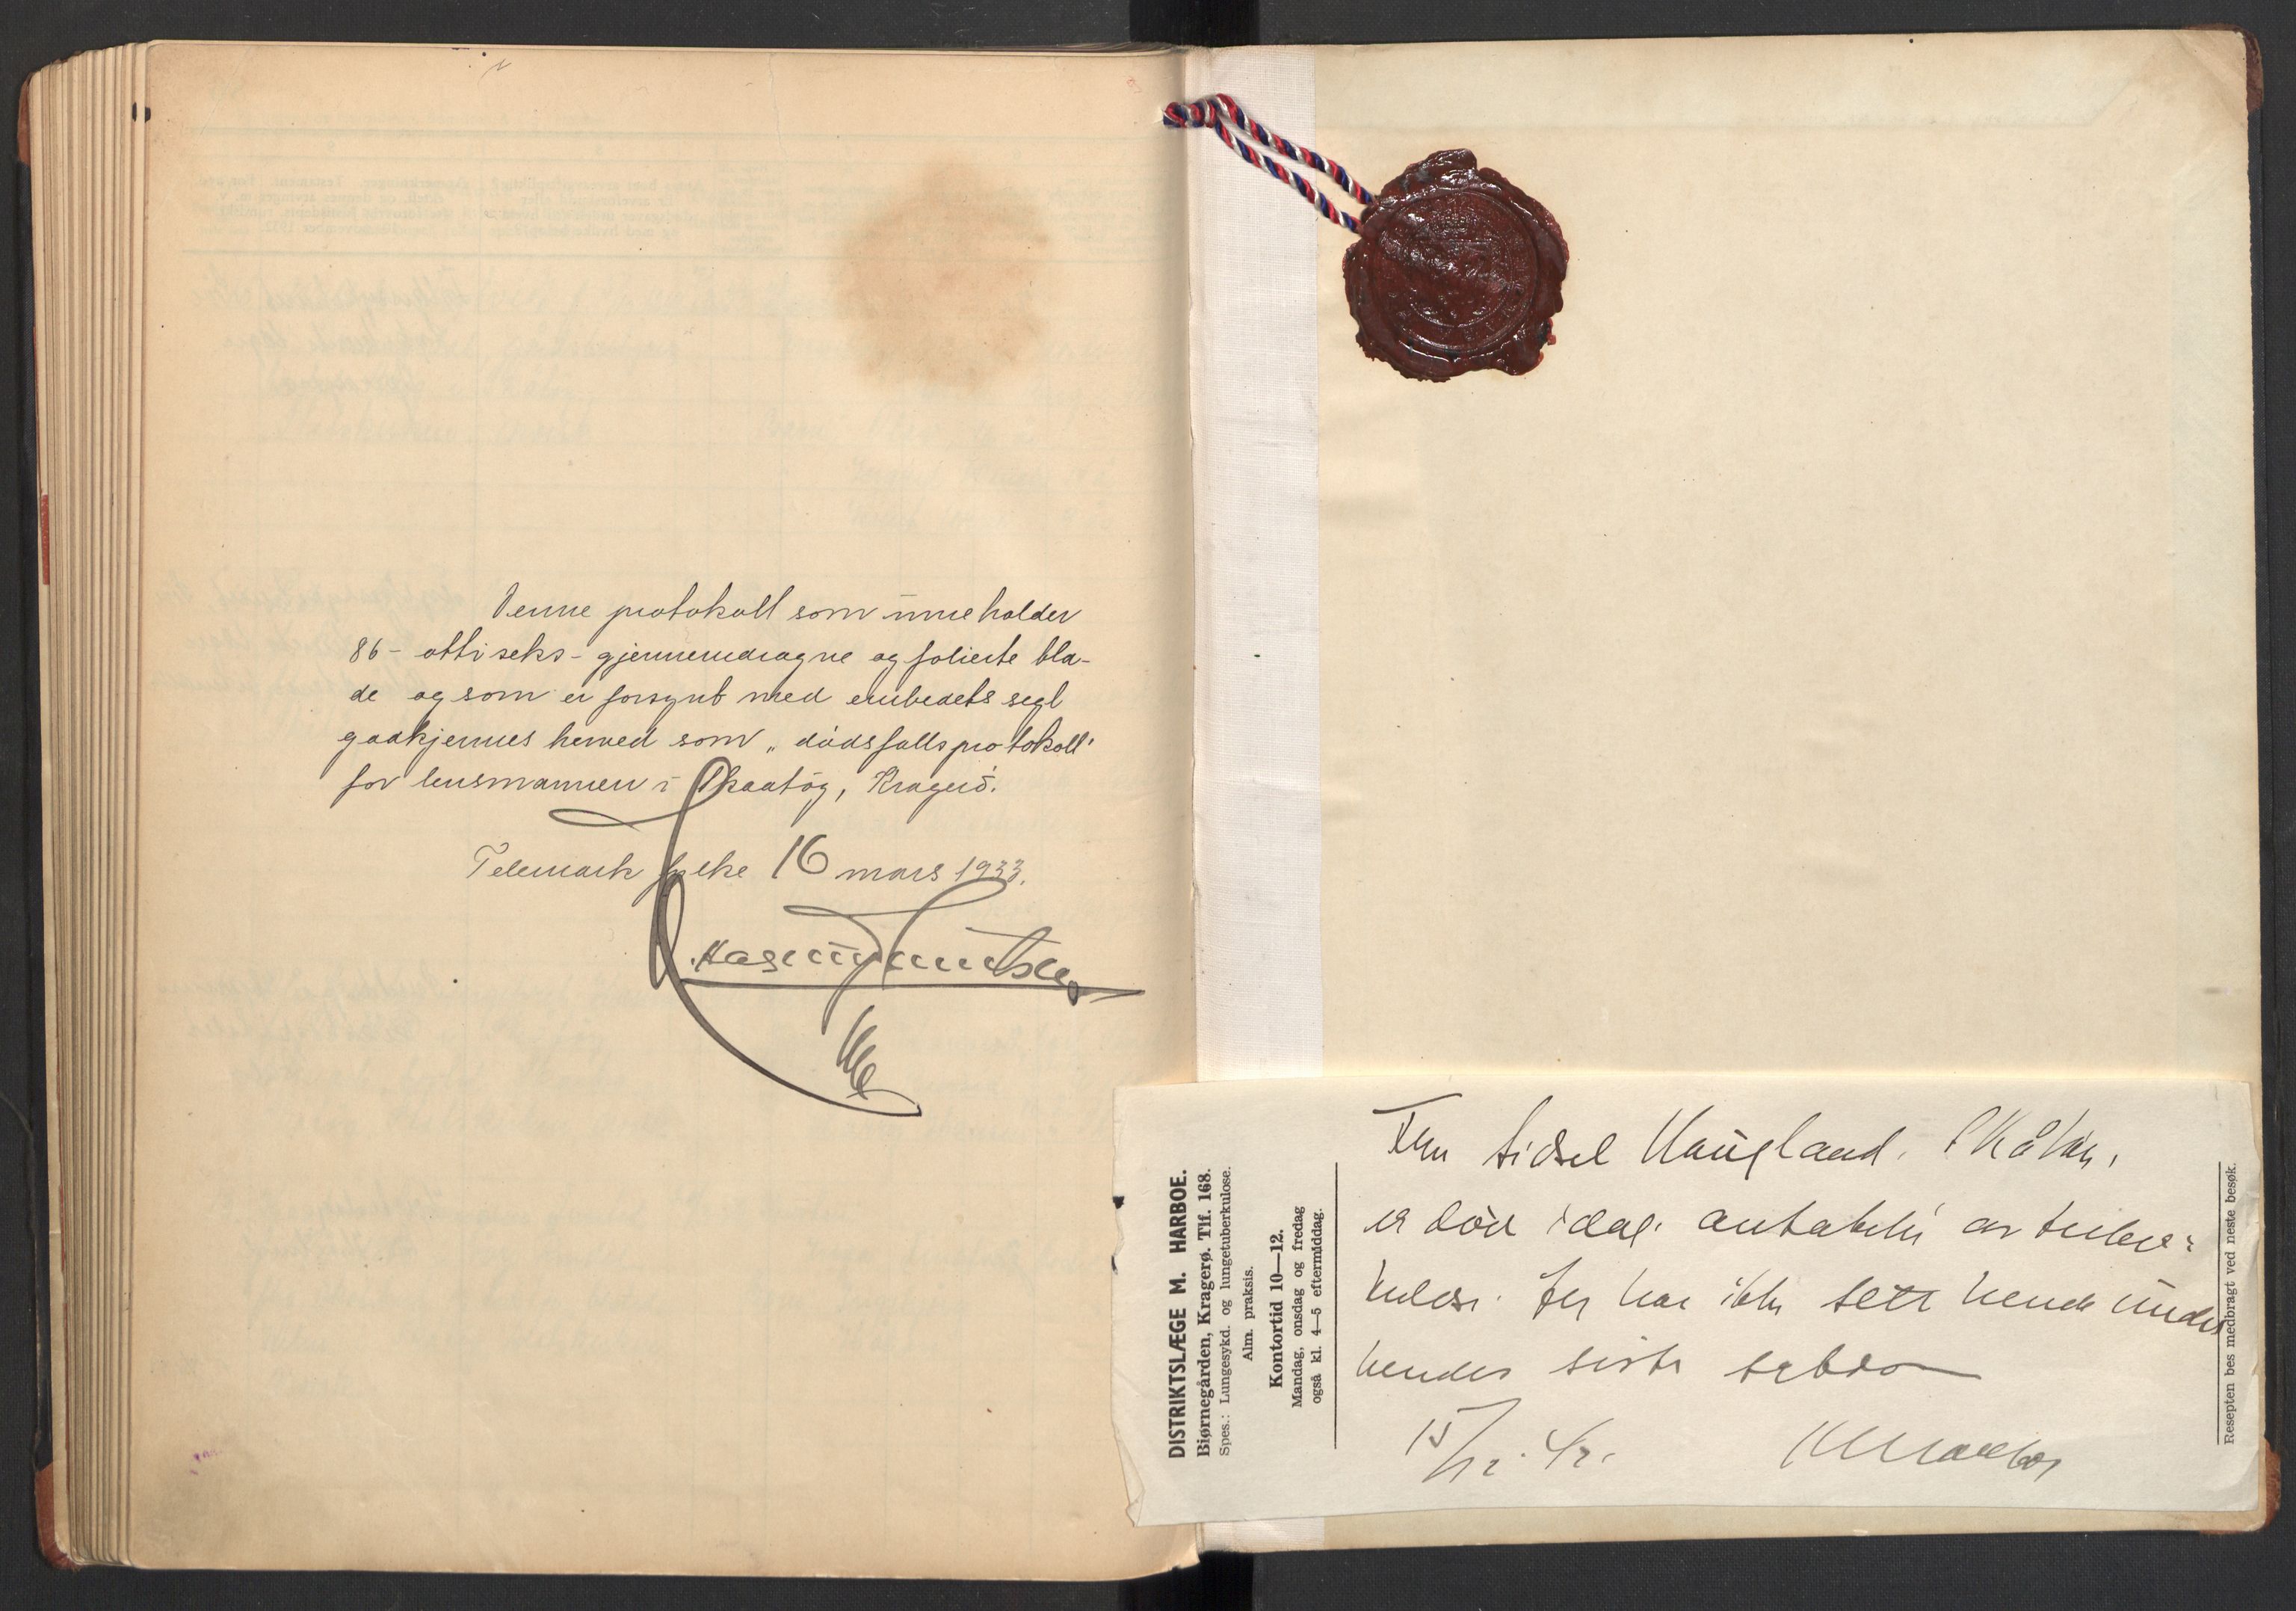 Denne protokoll som inneholder
86 - otti seks - gjennemdragne og folierte bla-
de og som er forsynt med embedets segl
godkjennes herved som „dødsfallsprotokoll"
for lensmannen i Skaatøy, Kragerø.
Telemark fylke 16 mars 1933.
DISTRIKTSLÆGE M. HARBOE.
Biørnegården, Kragerø. Tlf. 168.
Spes.: Lungesykd. og lungetuberkulose.
Alm. praksis.
Kontortid 10—12.
Mandag, onsdag og fredag
også kl. 4—5 eftermiddag.
Fru Sidsel Haugland, Skåtøy,
er død idag. antakelig av tuber-
kulose. Jeg har ikke sett hende under
hendes siste
15/12. 42.
M Harboe
Resepten bes medbragt ved neste besøk.